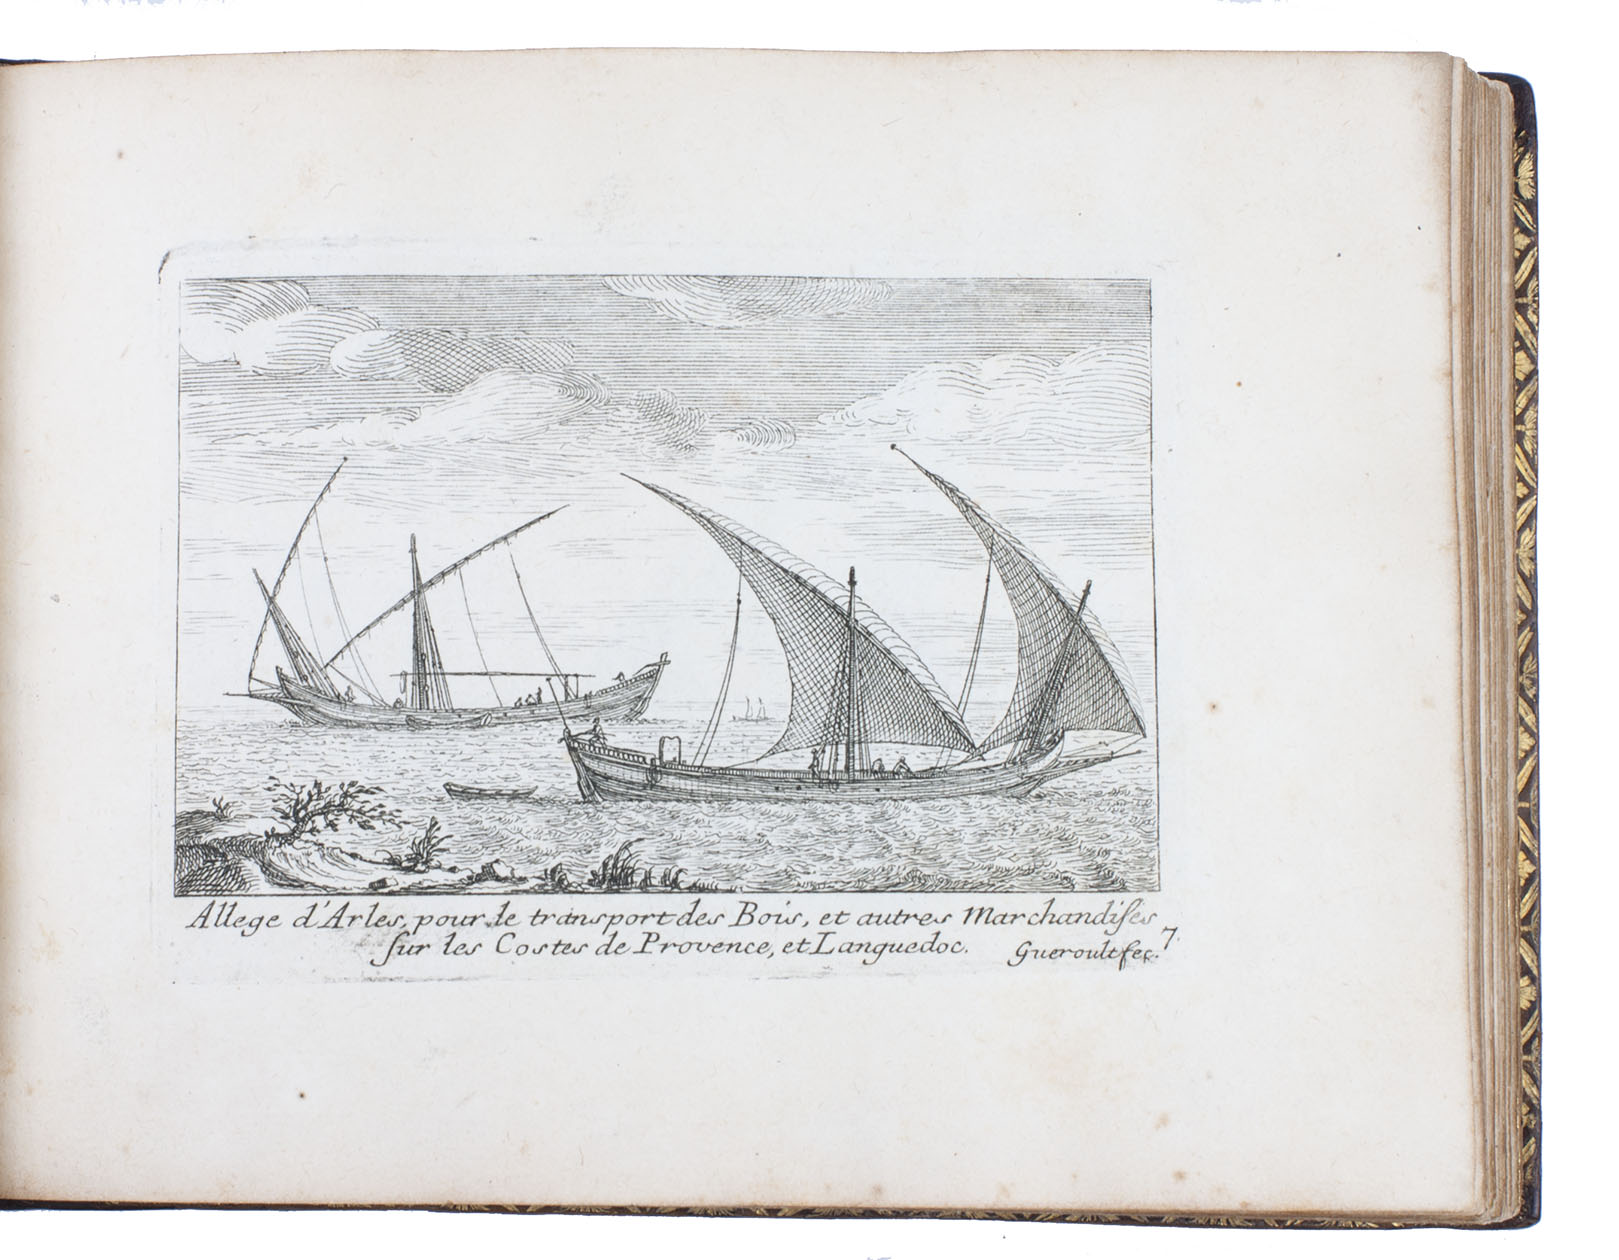 Allege d'Arles, pour le transport des Bois, et autres Marchandiſes
ſur les Costes de Provence, et Languedoc. Gueroult fec. 7.